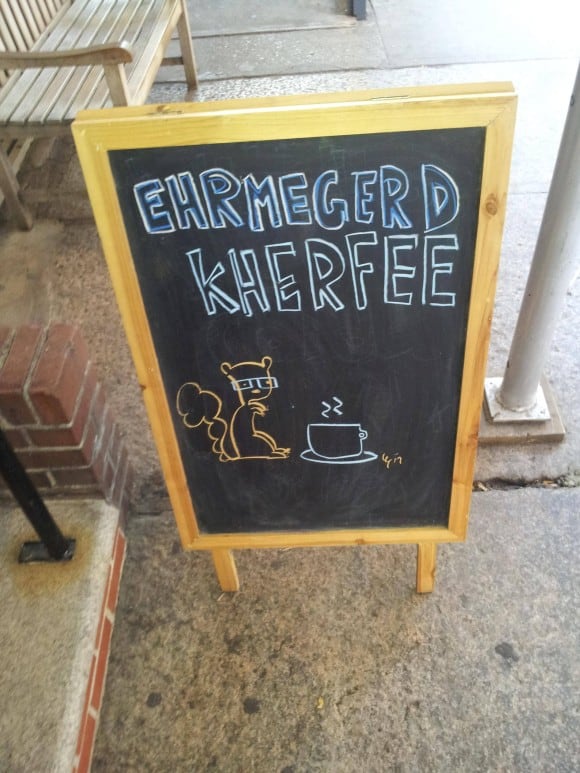 EHRMEGERD
KHERFEE